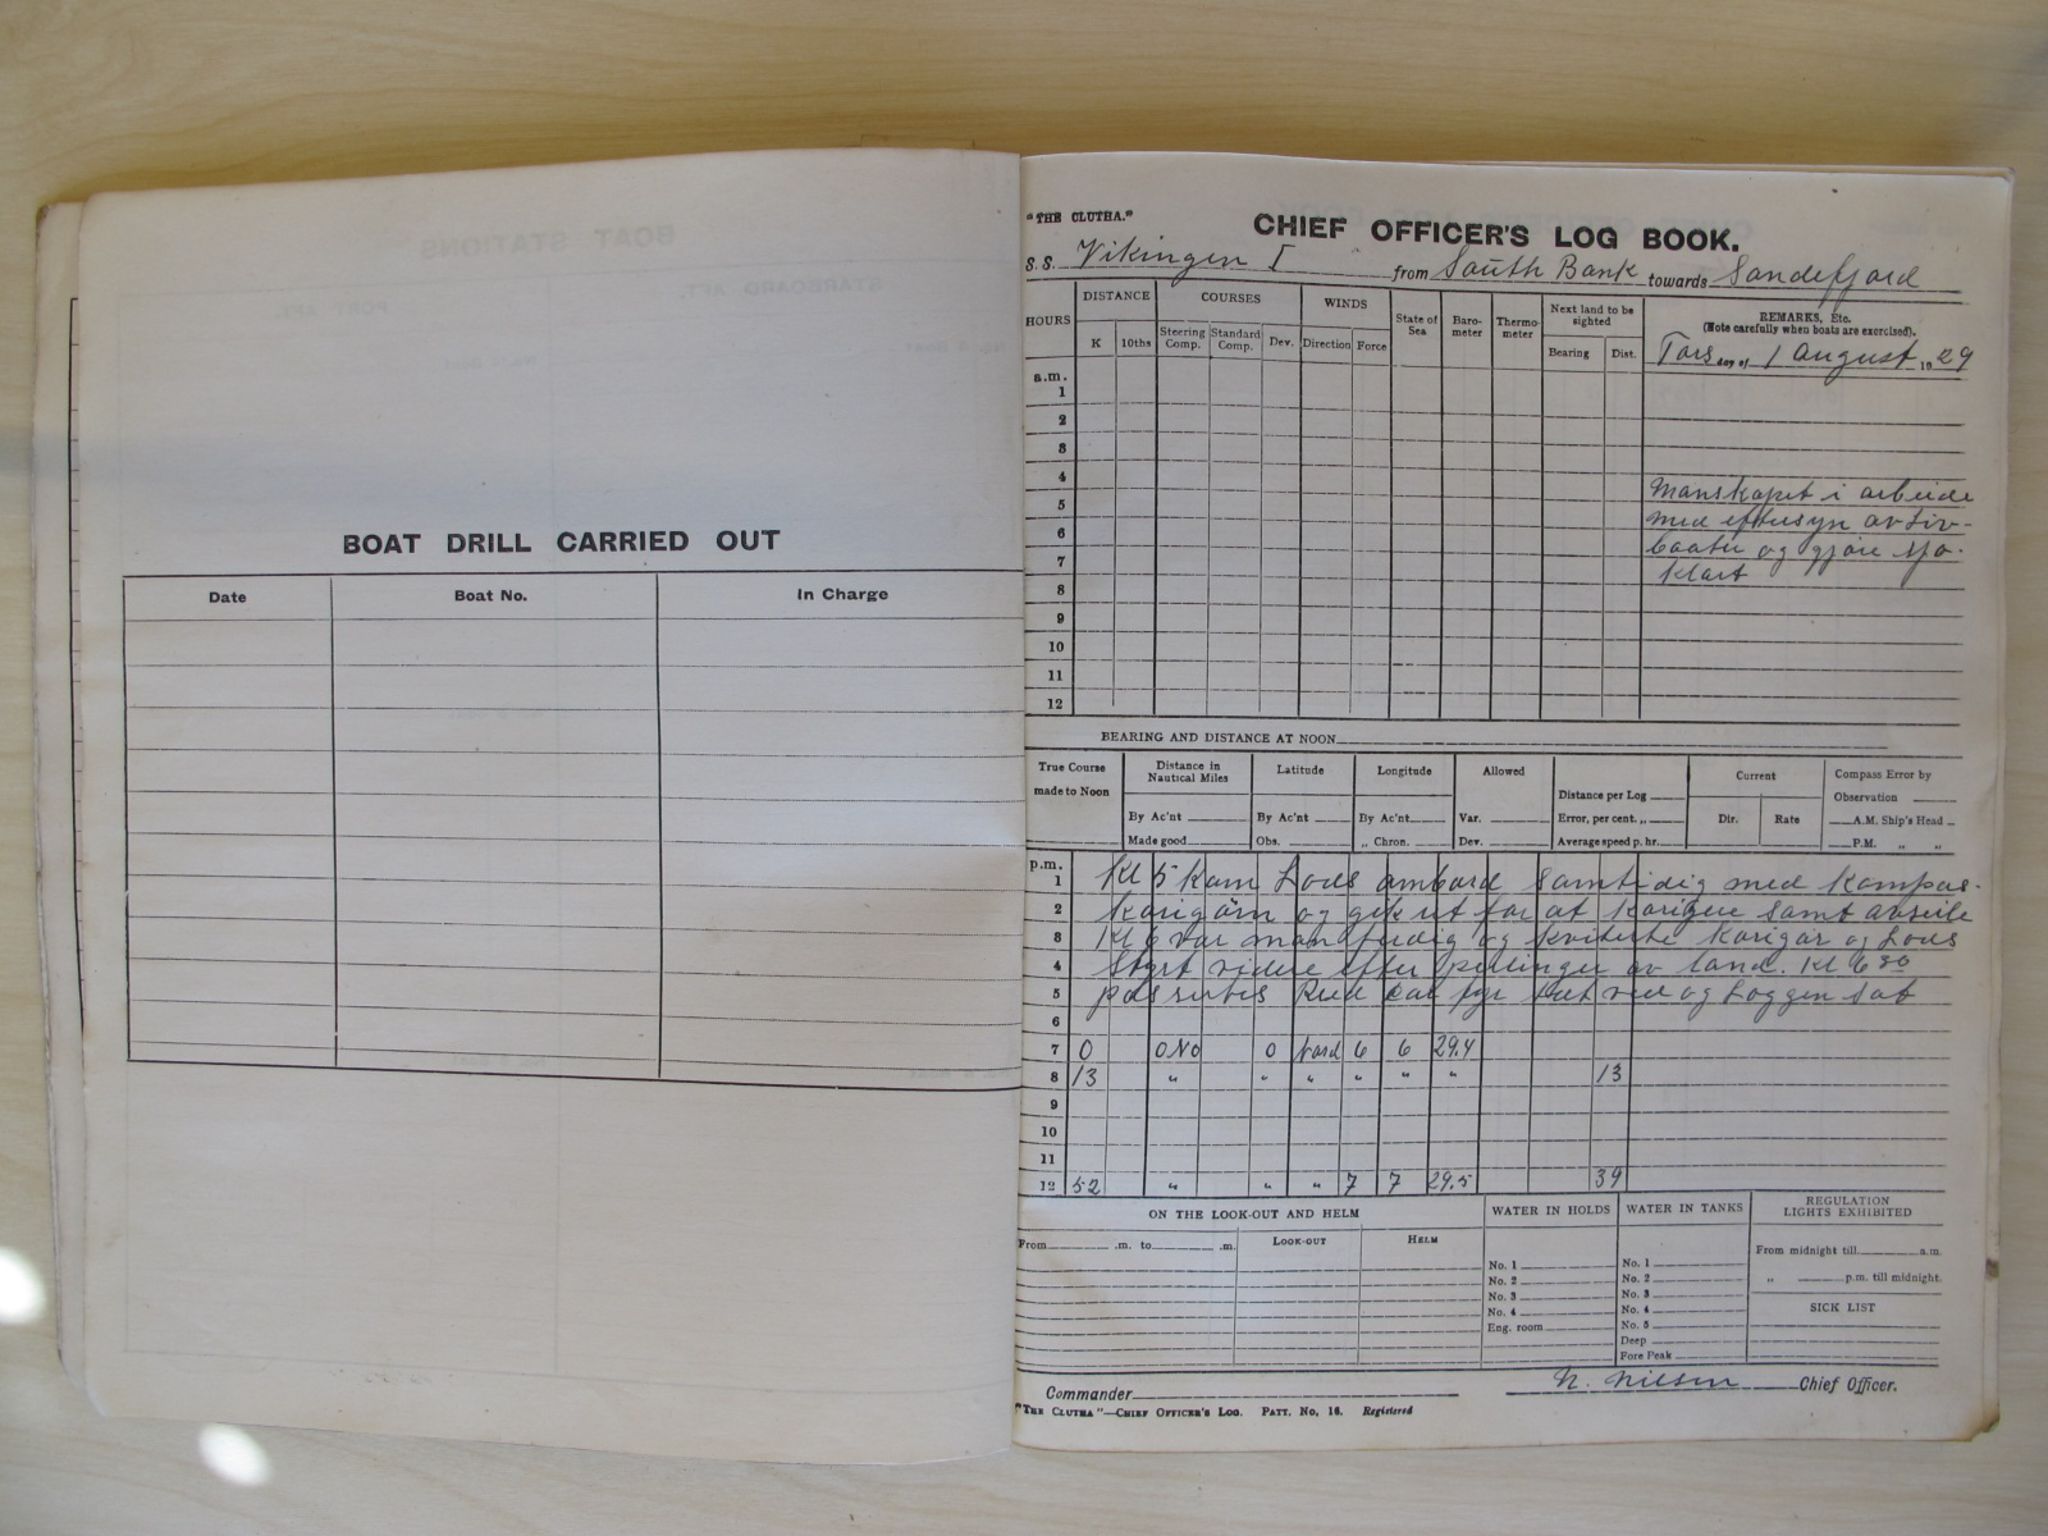 BOAT DRILL CARRIED OUT
Date Boat No. In Charge
"THE CLUTHA."
CHIEF OFFICER'S LOG BOOK.
S.S. Vikingen I from South Bank towards Sandefjord
HOURS DISTANCE COURSES WINDS State of Sea Baro-meter Thermo-meter Next land to be sighted REMARKS, Etc.
(Note carefully when boats are exercised).
K 10ths Steering Comp. Standard Comp. Dev. Direction Force Bearing Dist.
Tors day of 1 August 1929
a.m.
1
2
3
4
Manskapet i arbeide
5
med eftersyn av Liv-
6
baater og gjöre sjö-
7
klart
8
9
10
11
12
BEARING AND DISTANCE AT NOON
True Course made to Noon Distance in Nautical Miles Latitude Longitude Allowed Distance per Log Current Compass Error by
Observation
By Ac'nt By Ac'nt By Ac'nt Var. Error, per cent. „ Dir. Rate A.M. Ship's Head
Made good Obs. „ Chron. Dev. Average speed p. hr. P.M. „ „
p.m.
1 Kl 5 kom Lods ombord samtidig med Kompas-
2 og gik ut for at samt avseile
3 Kl 6 var man ferdig og kviterte og Lods
4 Styrt videre efter peilinger av land. Kl 6 30
5 fyr tæt ved og Loggen sat
6
7 0 ONO 0 Nord 6 6 29.4
8 13 " " " " " " 13
9
10
11
12 52 " " " 7 7 29.5 39
ON THE LOOK-OUT AND HELM WATER IN HOLDS WATER IN TANKS REGULATION LIGHTS EXHIBITED
From .m. to .m. LOOK-OUT HELM
From midnight till a.m.
„ p.m. till midnight.
SICK LIST
No. 1 No. 1
No. 2 No. 2
No. 3 No. 3
No. 4 No. 4
Eng. room No. 5
Deep
Fore Peak
Commander N. Nilsen Chief Officer.
"THE CLUTHA"—CHIEF OFFICER'S LOG. PATT. No. 16. Registered